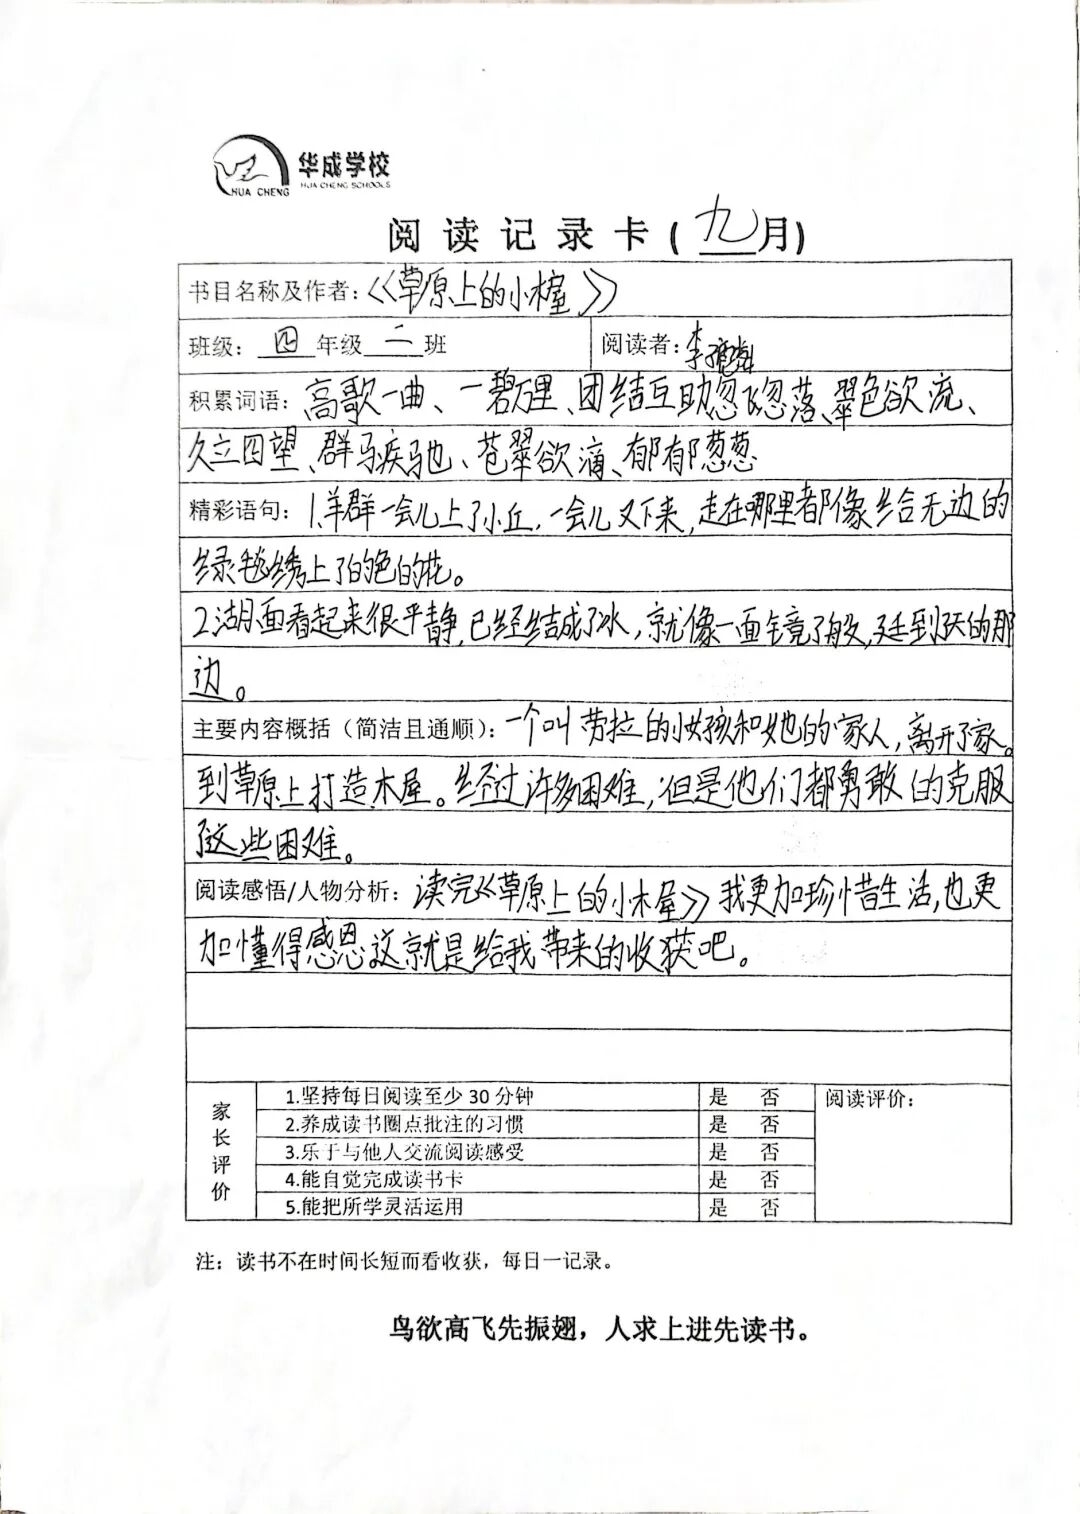 HUA CHENG
华成学校
HUA CHENG SCHOOLS
阅读记录卡(九月)
书目名称及作者:《草原上的小木屋》
班级: 四 年级 二 班 阅读者: 李
积累词语: 高歌一曲、一碧万里、团结互助忽飞忽落、翠色欲流、
久立四望、群马疾驰、苍翠欲滴、郁郁葱葱
精彩语句: 1.羊群一会儿上了小丘,一会儿又下来,走在哪里都像给无边的
绿毯绣上了白色的花。
2.湖面看起来很平静,已经结成了冰,就像一面镜子般,延到天的那
边。
主要内容概括(简洁且通顺): 一个叫劳拉的小女孩和她的家人,离开了家。
到草原上打造木屋。经过许多困难,但是他们都勇敢的克服
了这些困难。
阅读感悟/人物分析: 读完《草原上的小木屋》我更加珍惜生活,也更
加懂得感恩。这就是给我带来的收获吧。
家长评价
1.坚持每日阅读至少 30 分钟 是 否 阅读评价:
2.养成读书圈点批注的习惯 是 否
3.乐于与他人交流阅读感受 是 否
4.能自觉完成读书卡 是 否
5.能把所学灵活运用 是 否
注: 读书不在时间长短而看收获, 每日一记录。
鸟欲高飞先振翅, 人求上进先读书。